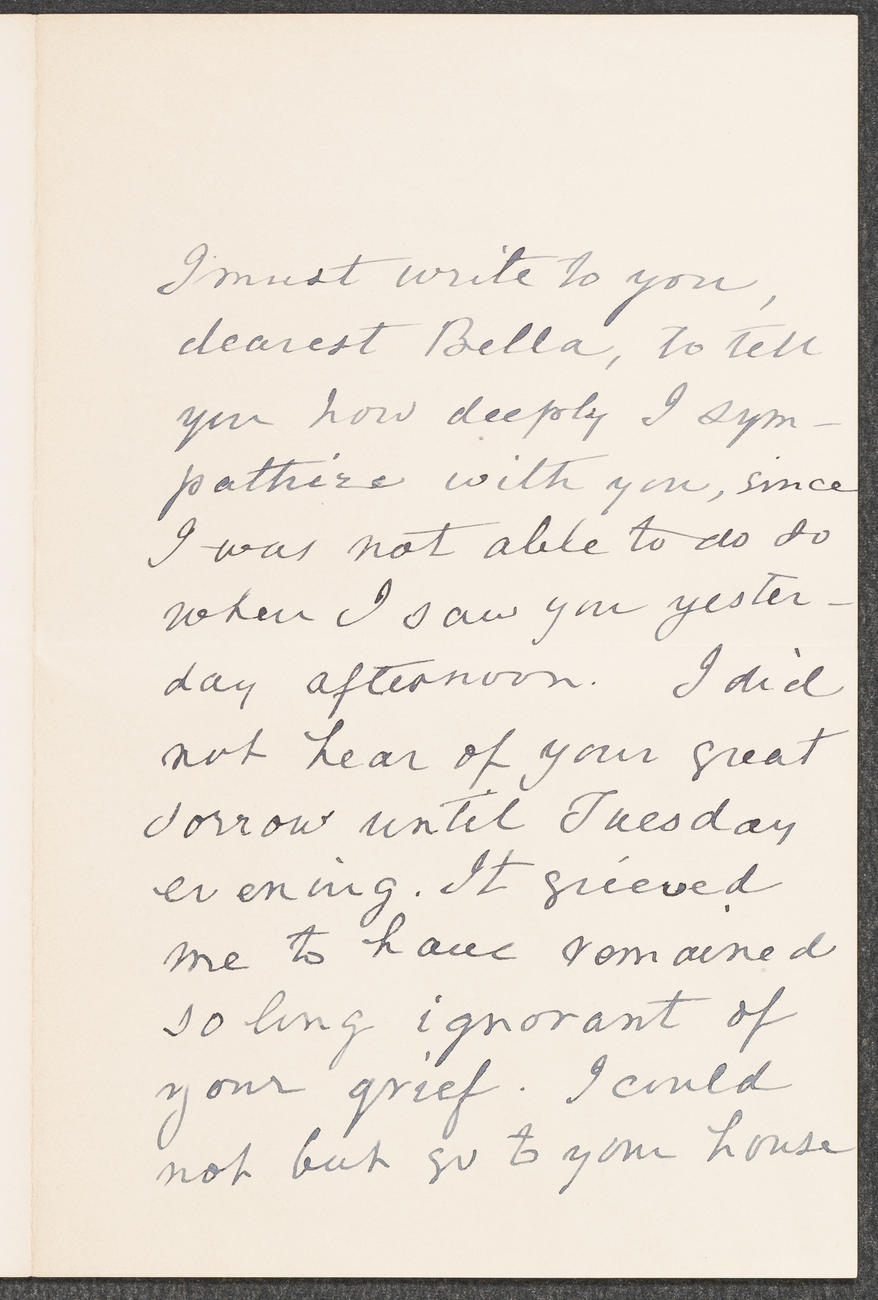 I must write to you,
dearest Bella, to tell
you how deeply I sym-
pathize with you, since
I was not able to do so
when I saw you yester-
day afternoon. I did
not hear of your great
sorrow until Tuesday
evening. It grieved
me to have remained
so long ignorant of
your grief. I could
not but go to your house